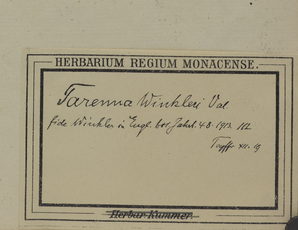 HERBARIUM REGIUM MONACENSE.
Tarenna Winkleri Val
fide Winkler in Engl. bot. Jahrb. 48. 1912. 112
XII. 19
Herbar Kummer.